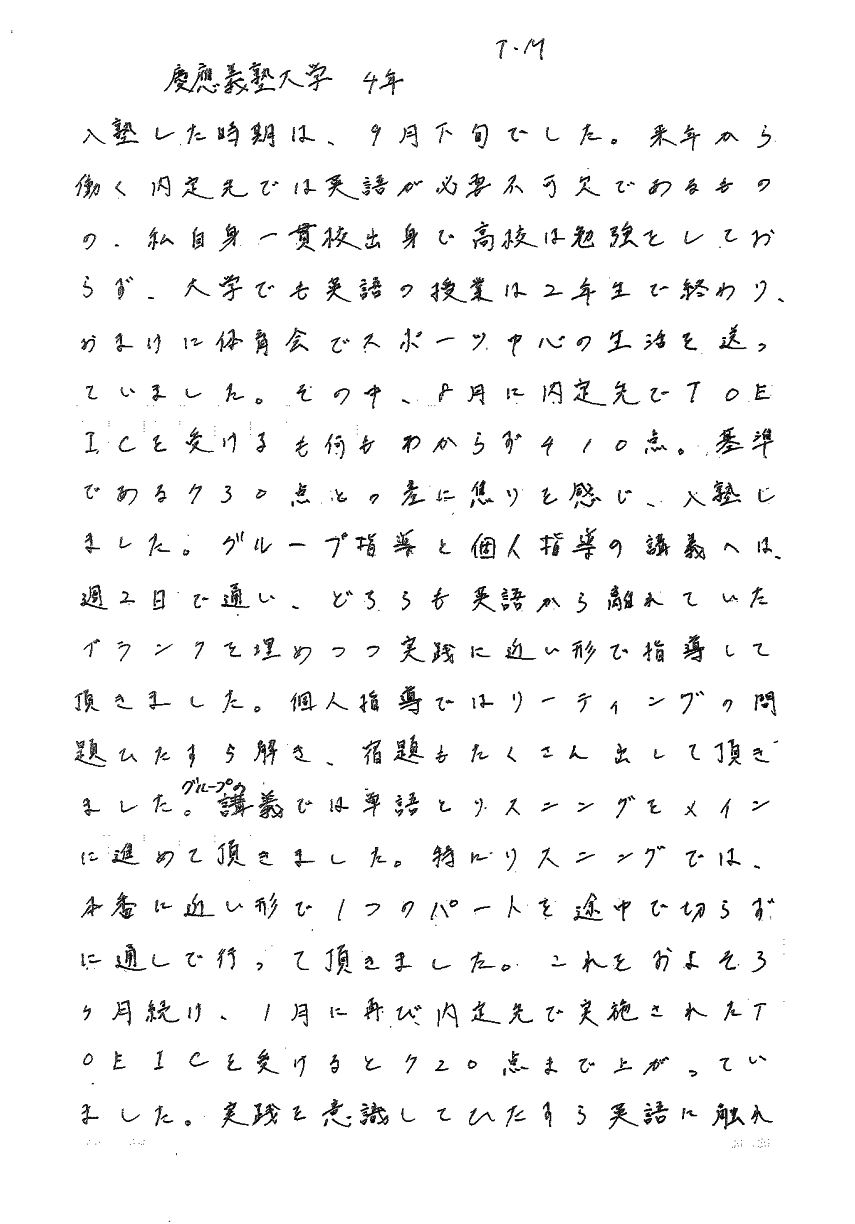 T.M
慶應義塾大学 4年
入塾した時期は、9月下旬でした。来年から
働く内定先では英語が必要不可欠であるもの
の、私自身一貫校出身で高校は勉強をしてお
らず、大学でも英語の授業は2年生で終わり、
おまけに体育会でスポーツ中心の生活を送っ
ていました。その中、8月に内定先でTOE
ICを受けるも何もわからず410点。基準
である730点との差に焦りを感じ、入塾し
ました。グループ指導と個人指導の講義へは、
週2日で通い、どちらも英語から離れていた
ブランクを埋めつつ実践に近い形で指導して
頂きました。個人指導ではリーティングの問
題ひたすら解き、宿題もたくさん出して頂き
ました。グループの講義では単語とリスニングをメイン
に進めて頂きました。特にリスニングでは、
本番に近い形で1つのパートを途中で切らず
に通しで行って頂きました。これをおよそ3
ヶ月続け、1月に再び内定先で実施されたT
OEICを受けると720点まで上がってい
ました。実践を意識してひたすら英語に触れ